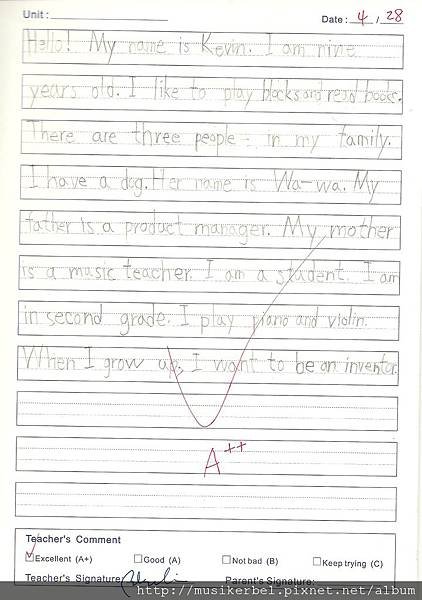 Unit:
Date: 4, 28
Hello! My name is Kevin. I am nine
years old. I like to play blocks and read books.
There are three people in my family.
I have a dog. Her name is Wa-wa. My
father is a product manager. My mother
is a music teacher. I am a student. I am
in second grade. I play piano and violin.
When I grow up, I want to be an inventor.
A++
Teacher's Comment
Excellent (A+) Good (A) Not bad (B) Keep trying (C)
Teacher's Signature: Parent's Signature:
http://musikerbel.pixnet.net/album